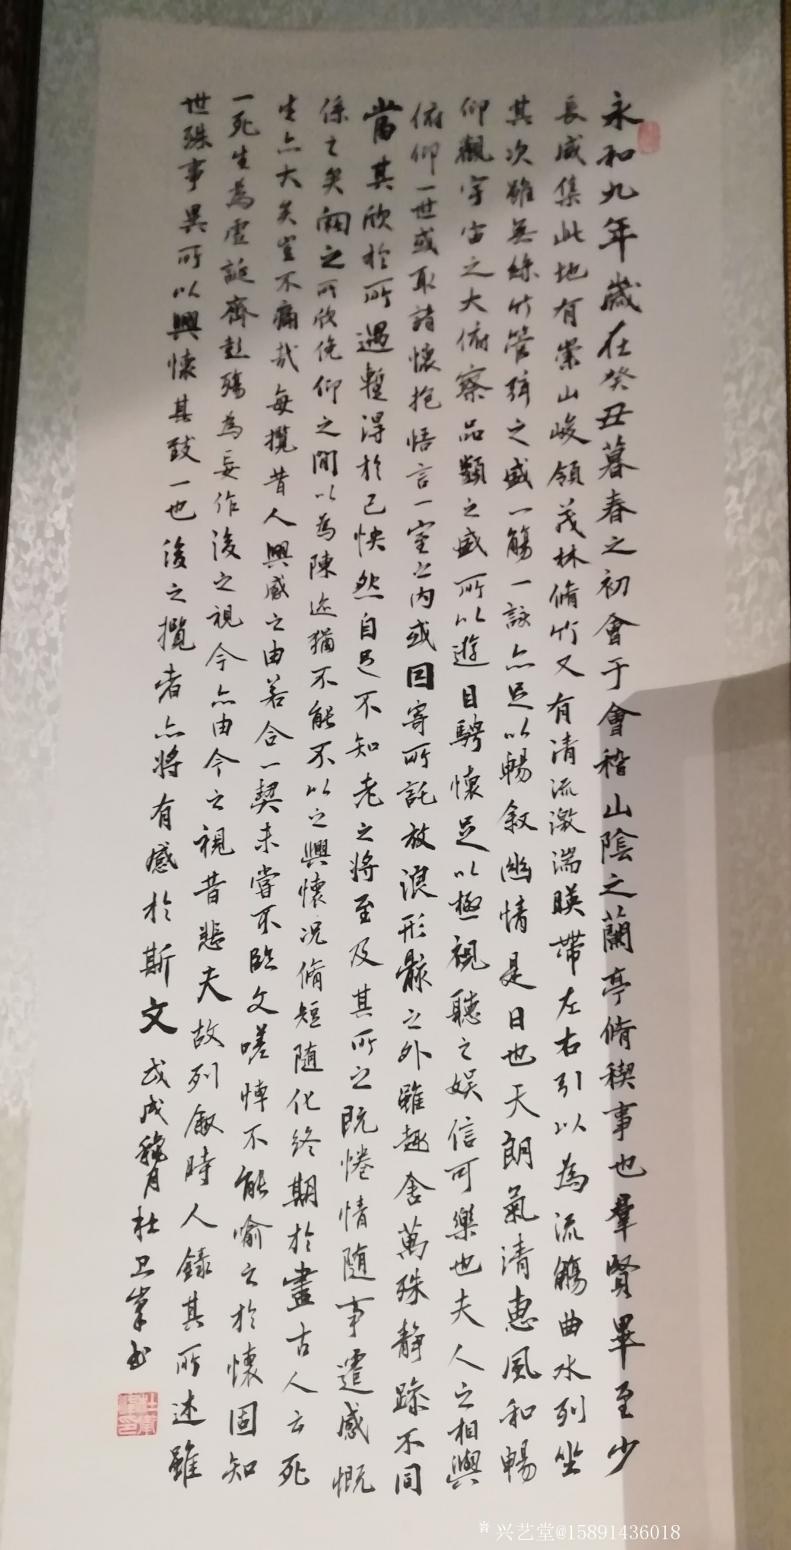 永和九年歲在癸丑暮春之初會于會稽山陰之蘭亭脩稧事也羣賢畢至少
長咸集此地有崇山峻領茂林脩竹又有清流激湍暎帶左右引以為流觴曲水列坐
其次雖無絲竹管弦之盛一觴一詠亦足以暢叙幽情是日也天朗氣清惠風和暢
仰觀宇宙之大俯察品類之盛所以遊目騁懷足以極視聽之娛信可樂也夫人之相與
俯仰一世或取諸懷抱悟言一室之內或因寄所託放浪形骸之外雖趣舍萬殊静躁不同
當其欣於所遇暫得於己怏然自足不知老之將至及其所之既惓情隨事遷感慨
係之矣向之所欣俛仰之間以為陳迹猶不能不以之興懷況脩短隨化終期於盡古人云死
生亦大矣豈不痛哉每攬昔人興感之由若合一契未嘗不臨文嗟悼不能喻之於懷固知
一死生為虛誕齊彭殤為妄作後之視今亦由今之視昔悲夫故列敘時人錄其所述雖
世殊事異所以興懷其致一也後之攬者亦將有感於斯文 戊戌 月杜卫 书
兴艺堂@15891436018